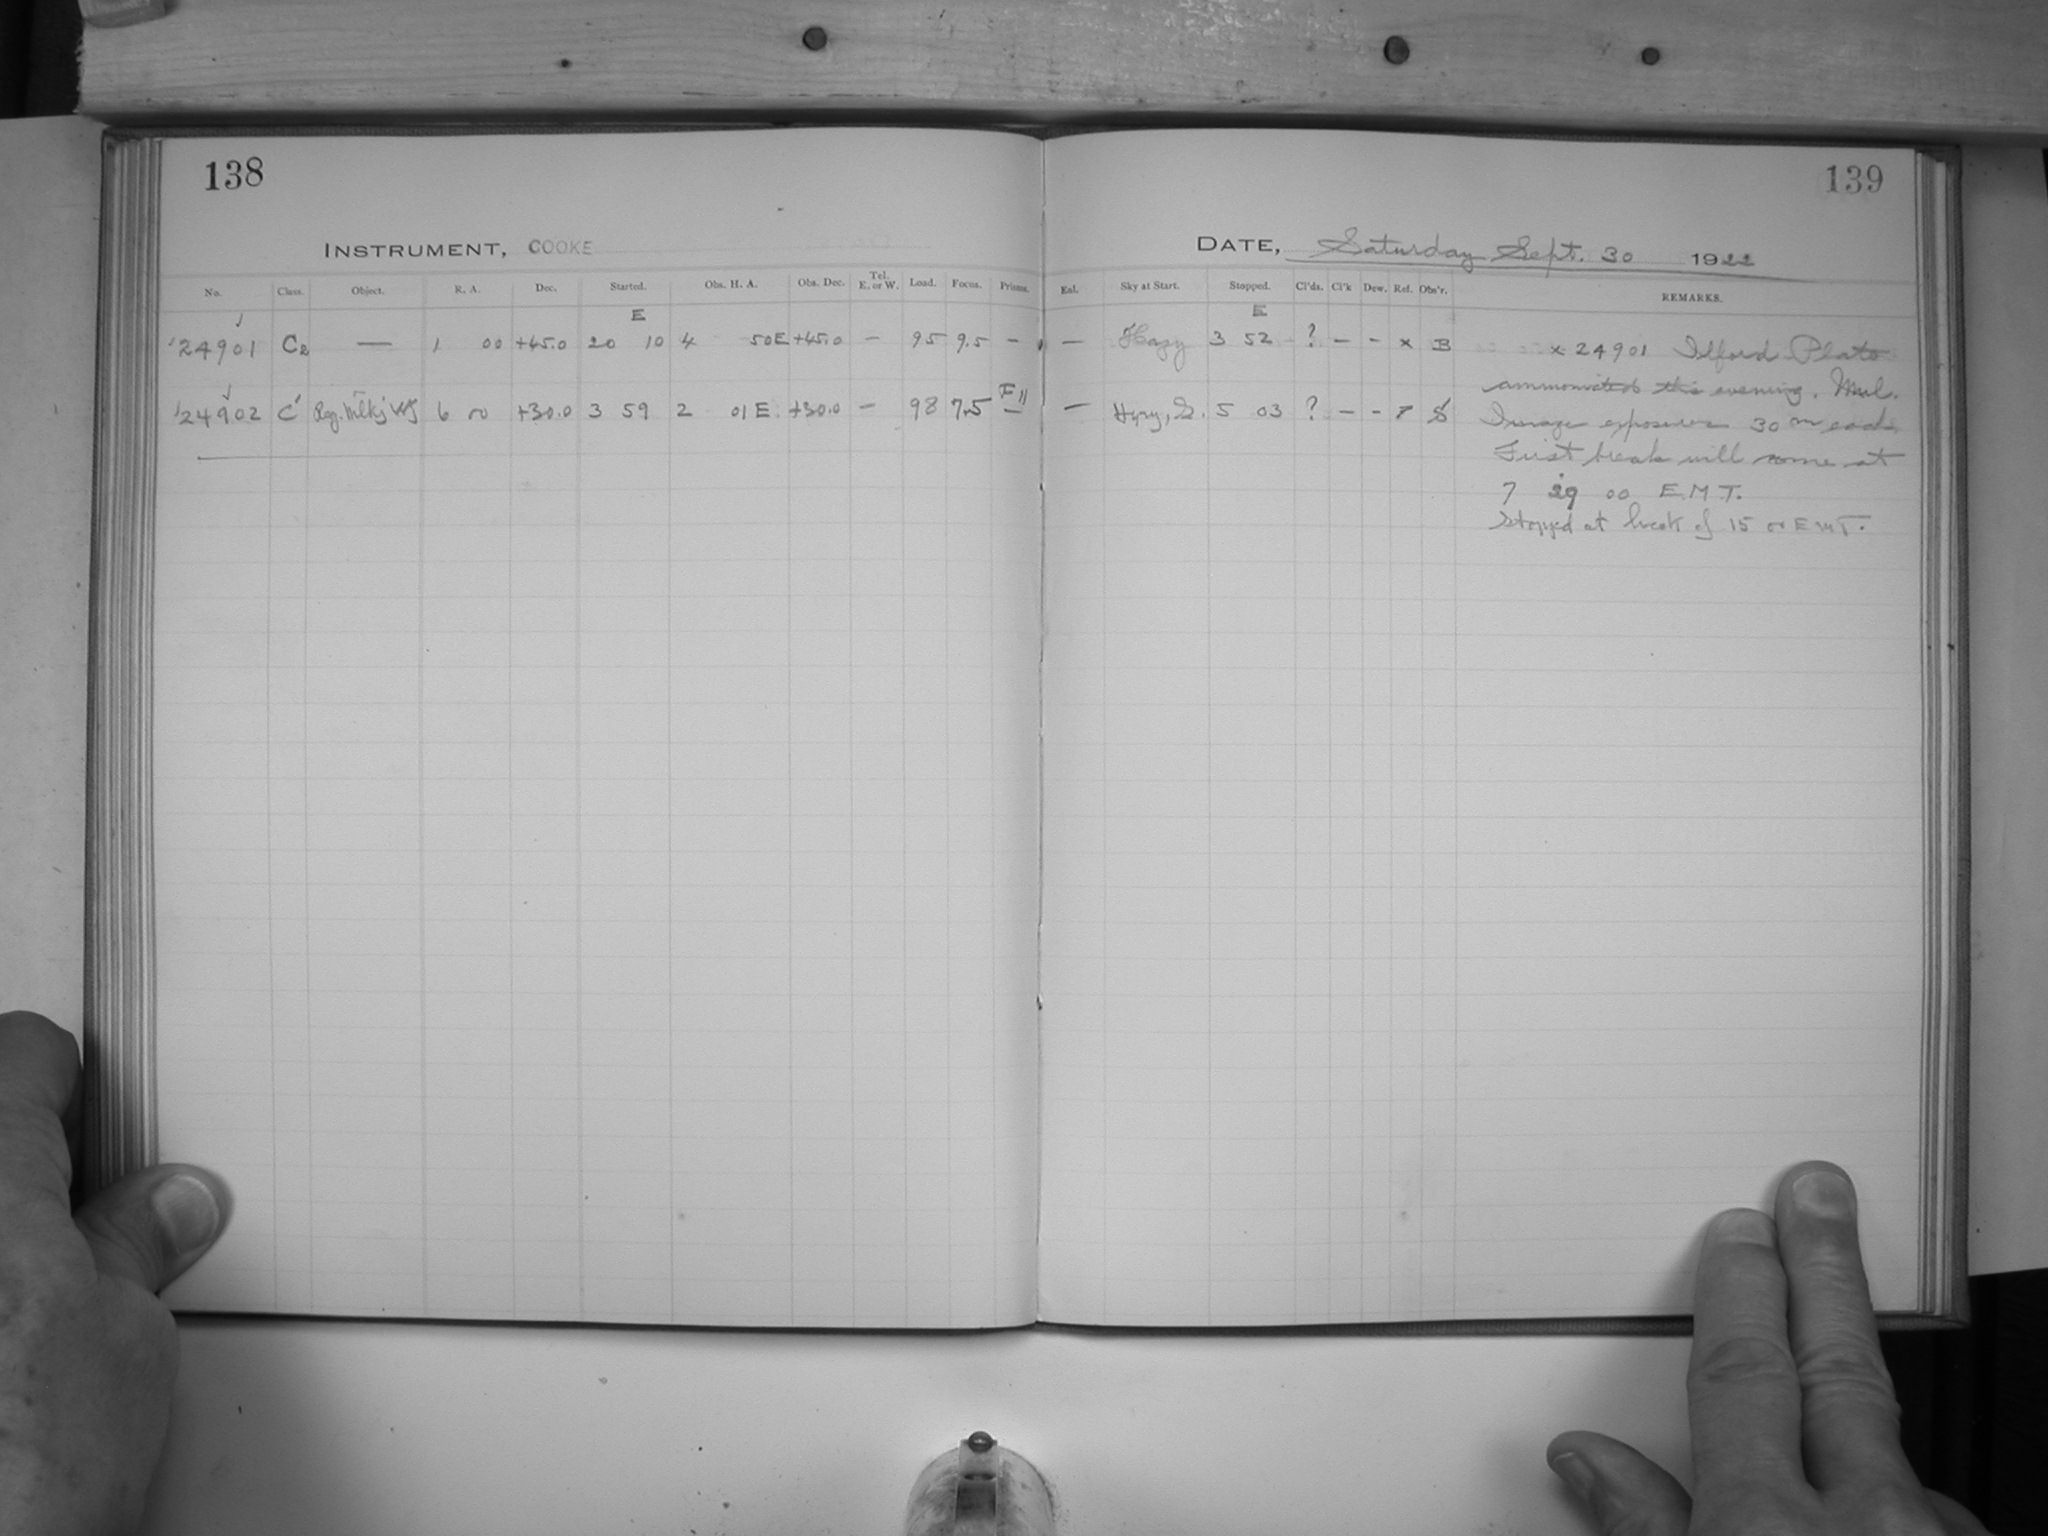 138
INSTRUMENT, COOKE
No. Class. Object. R. A. Dec. Started. Obs. H. A. Obs. Dec. Tel. E. or W. Load. Focus. Prisms.
E
24901 C2 — 1 00 +45.0 20 10 4 50E +45.0 — 95 9.5 —
24902 C 6 00 +30.0 3 59 2 01 E. +30.0 — 98 7.5
139
DATE, Saturday Sept. 30 1922
Enl. Sky at Start. Stopped. Cl'ds. Cl'k Dew. Ref. Obs'r. REMARKS.
E
— Hazy 3 52 ? — - x B
— 5 03 ? — - S
x 24901 Ilford Plate
ammoniated this evening. Mul.
Image exposures 30 m each.
First break will come at
7 29 00 E.M.T.
Stopped at break of 15 E M T.